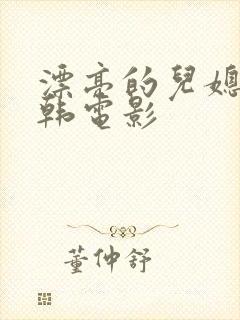 漂亮的兒媳
韩電影
董仲舒